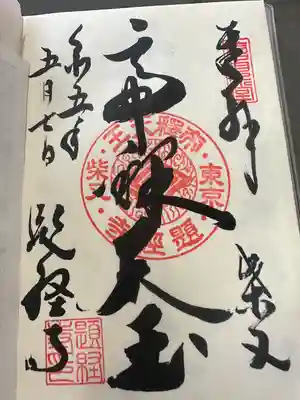 奉拝
柴又
帝釋天王
帝釋天王・東京・題經寺・柴又
題経寺
題経寺印
令五年
五月七日